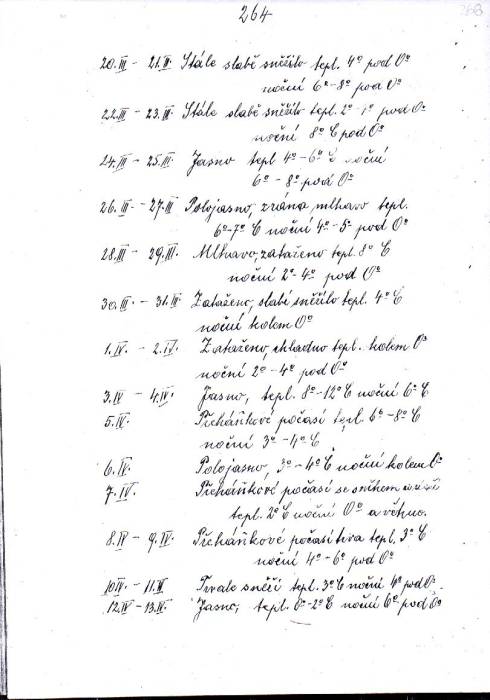 264
20.III - 21.III. Stále slabě sněžilo tepl. 4° pod 0°
noční 6°-8° pod 0°
22.III - 23.III. Stále slabě sněžilo tepl. 2°-1° pod 0°
noční 8° C pod 0°
24.III - 25.III. Jasno tepl 4°-6° C noční
6° - 8° pod 0°
26.III. - 27.III Polojasno, zrána, mlhavo tepl.
6°-7° C noční 4°-5° pod 0°
28.III - 29.III. Mlhavo, zataženo tepl. 8° C
noční 2°-4° pod 0°
30.III. - 31.III Zataženo, slabě sněžilo tepl. 4° C
noční kolem 0°
1.IV. - 2.IV. Zataženo, chladno tepl. kolem 0°
noční 2° - 4° pod 0°
3.IV - 4.IV. Jasno, tepl. 8°-12° C noční 6° C
5.IV. Přeháňkové počasí tepl. 6°-8° C
noční 3°-4° C
6.IV. Polojasno, 3°-4° C noční kolem 0°
7.IV. Přeháňkové počasí se sněhem
tepl. 2° C noční 0° a větrno.
8.IV - 9.IV. Přeháňkové počasí trva tepl. 3° C
noční 4°-6° pod 0°
10.IV. - 11.IV Trvale sněží tepl. 3° C noční 4° pod 0°
12.IV - 13.IV. Jasno, tepl. 0°-2° C noční 6° pod 0°